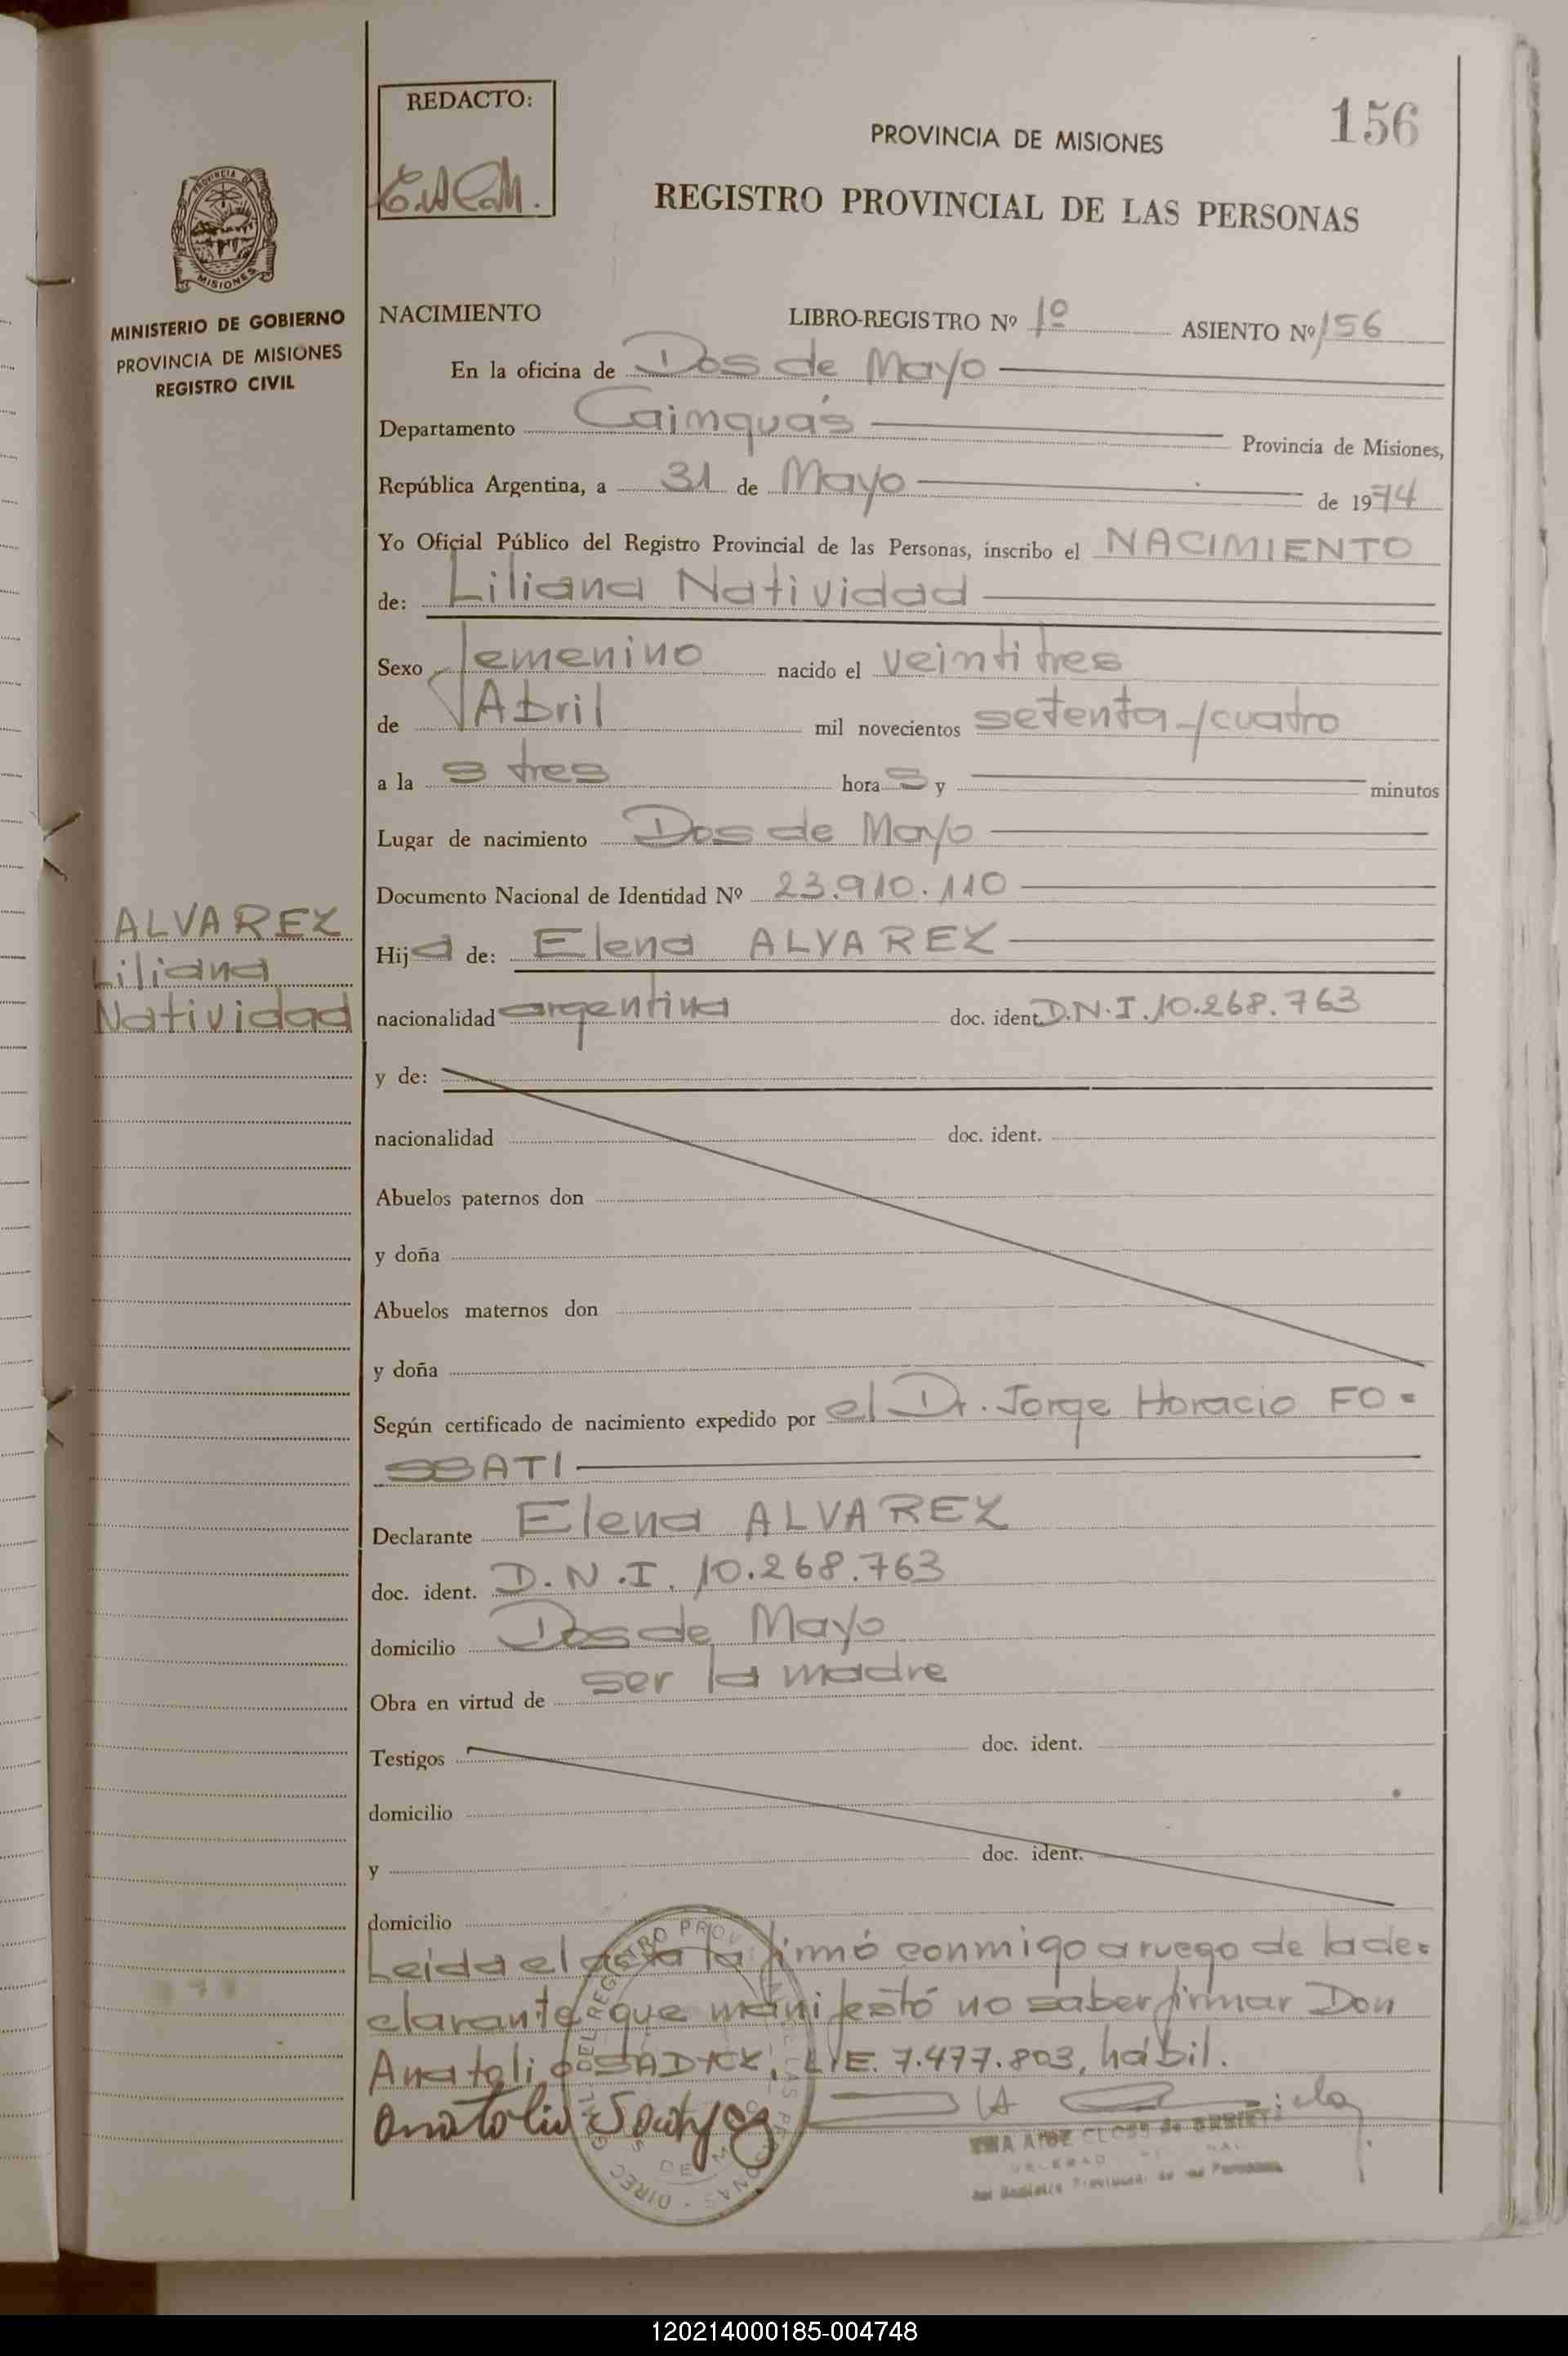 REDACTO:
156
PROVINCIA DE MISIONES
REGISTRO PROVINCIAL DE LAS PERSONAS
PROVINCIA DE
MISIONES
MINISTERIO DE GOBIERNO
PROVINCIA DE MISIONES
REGISTRO CIVIL
NACIMIENTO LIBRO-REGISTRO Nº 1º ASIENTO Nº 156
En la oficina de Dos de Mayo
Departamento Cainguás Provincia de Misiones,
República Argentina, a 31 de Mayo de 1974
Yo Oficial Público del Registro Provincial de las Personas, inscribo el NACIMIENTO
de: Liliana Natividad
Sexo femenino nacido el veintitres
de Abril mil novecientos setenta y cuatro
a la s tres hora s y minutos
Lugar de nacimiento Dos de Mayo
Documento Nacional de Identidad Nº 23.910.110
ALVAREZ
Liliana
Natividad
Hija de: Elena ALVAREZ
nacionalidad argentina doc. ident. D.N.I. 10.268.763
y de:
nacionalidad doc. ident.
Abuelos paternos don
y doña
Abuelos maternos don
y doña
Según certificado de nacimiento expedido por el Dr. Jorge Horacio FO=
SSATI
Declarante Elena ALVAREZ
doc. ident. D.N.I. 10.268.763
domicilio Dos de Mayo
Obra en virtud de ser la madre
Testigos doc. ident.
domicilio
y doc. ident.
domicilio
Leída el acta la firmó conmigo a ruego de la de=
clarante que manifestó no saber firmar Don
Anatolio L.E. 7.477.803, hábil.
Anatolio
120214000185-004748